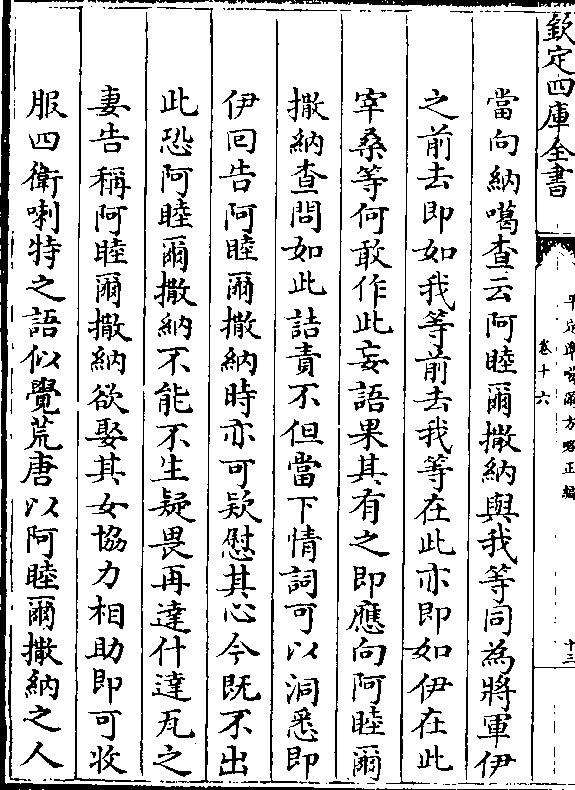 欽定四庫全書
平定準噶爾方略正編
卷十六
十三
當向納噶查云阿睦爾撒納與我等同為將軍伊
之前去即如我等前去我等在此亦即如伊在此
宰桑等何敢作此妄語果其有之即應向阿睦爾
撒納查問如此詰責不但當下情詞可以洞悉即
伊回告阿睦爾撒納時亦可歘慰其心今既不出
此恐阿睦爾撒納不能不生疑畏再達什達瓦之
妻告稱阿睦爾撒納欲娶其女協力相助即可收
服四衛喇特之語似覺荒唐以阿睦爾撒納之人